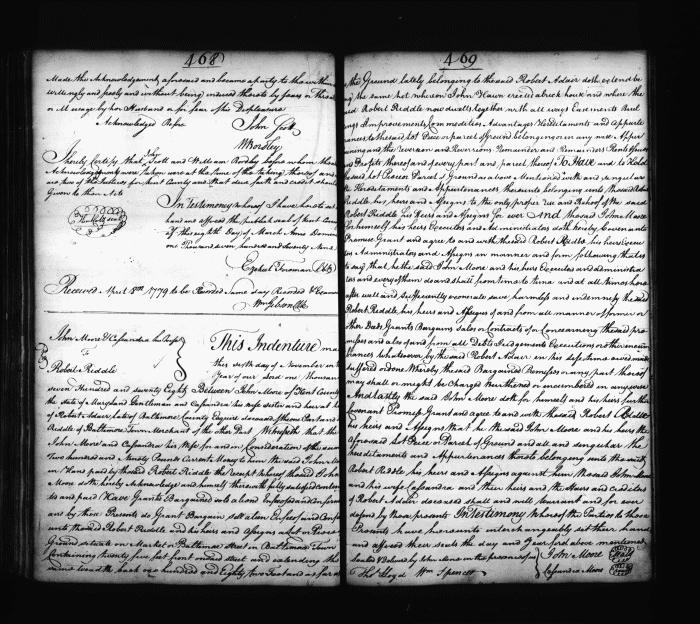 468
Made the Acknowledgement aforesaid and became a party to the within
willingly and freely and without being induced thereto by fears or Threats
or Ill usage by her Husband or for fear of his Displeasure
Acknowledged Before
John Scott
W Rordley
I hereby Certify that John Scott and William Rordley before whom the
Acknowledgments were taken were at the time of the taking thereof and
are two of the Justices for Kent County and that due faith and credit should be
Given to their Acts
In Testimony whereof I have hereto set my
hand and affixed the publick seal of Kent County
this eighth Day of March Anno Domini
one thousand seven hundred and seventy Nine
The Kent seal
Received April 8th 1779 to be Recorded Same day Recorded & Examd
Wm Gibson Clk
John Moore & Cassandra his Wife
To
Robert Riddle
This Indenture made
this sixth day of November in the
year of our Lord one Thousand
seven Hundred and seventy Eight Between John Moore of Kent County
the State of Maryland Gentleman and Cassandra his wife sister and heir at
of Robert Adair late of Baltimore County Esquire deceased of the one Part and
Riddle of Baltimore Town Merchant of the other Part Witnesseth that the
John Moore and Cassandra his Wife for and in Consideration of the sum
Two hundred and Ninety Pounds Current Money to him the said John Moore
in Hand paid by the said Robert Riddle the receipt whereof the said John
Moore doth hereby Acknowledge and himself therewith fully satisfied contented
and paid Have Grants Bargained sold aliened Enfeoffed and Confirmed
and by these Presents do Grant Bargain sell alien Enfeoff and Confirm
unto the said Robert Riddle and his heirs and Assigns all that Piece
Ground situate on Market or Baltimore Street in Baltimore Town
Containing twenty five feet front on said street and extending the
same breadth back one hundred and Eighty two Feet and as far as
469
the Ground lately belonging to the said Robert Adair doth extend being
the same lot whereon John Hawn erected a brick house and where the
said Robert Riddle now dwells together with all ways Easements Buil
dings Improvements Commodities Advantages Hereditaments and Apperte
nances to the said Lot Piece or parcel of Ground belonging or in any wise Apper
taining and the reversion and Reversions Remainder and Remainders Rents Issues
thereof and of every part and parcel thereof To Have and to Hold
the said Lot Piece or Parcel of Ground as above Mentioned with and singular
the Hereditaments and Appurtenances thereunto belonging unto the said Robert
Riddle his heirs and Assigns to the only proper Use and Behoof of the said
Robert Riddle his Heirs and Assigns for ever And the said John Moore
for himself his heirs Executors and Administrators doth hereby Covenant
Promise Grant and agree to and with the said Robert Riddle his heirs Execu
tors Administrators and Assigns in manner and form following that is
to say that he the said John Moore and his heirs Executors and administra
tors and every of them do and shall from time to time and at all times here
after well and sufficiently exonerate save harmless and indemnify the said
Robert Riddle his heirs and Assigns of and from all manner of former or
other Deeds Grants Bargains sales or Contracts of or Concerning the said pre
mises and also of and from all Debts Judgements Executions or other encum
brances whatsoever by the said Robert Adair in his life time owed made
suffered or done Whereby the said Bargained Premises or any part thereof
may shall or might be Charged Burthened or incumbered in any wise
And lastly the said John Moore doth for himself and his heirs further
Covenant Promise Grant and agree to and with the said Robert Riddle
his heirs and Assigns that he the said John Moore and his heirs the
aforesaid Lot Piece or Parcel of Ground and all and singular the
hereditaments and Appurtenances thereto belonging unto the said
Robert Riddle his heirs and Assigns against him the said John Moore
and his wife Cassandra and their heirs and the Heirs and creditors
of Robert Adair deceased shall and will Warrant and for ever
defend by these presents In Testimony whereof the Parties to these
Presents have hereunto interchangeably set their hands
and affixed their seals the day and Year first above mentioned
Sealed & Delivered by John Moore in the presence of us
John Moore Seal
Cassandra Moore
Thos Lloyd Wm Spencer